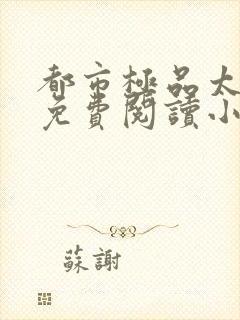 都市極品太
免費閱讀小
蘇謝